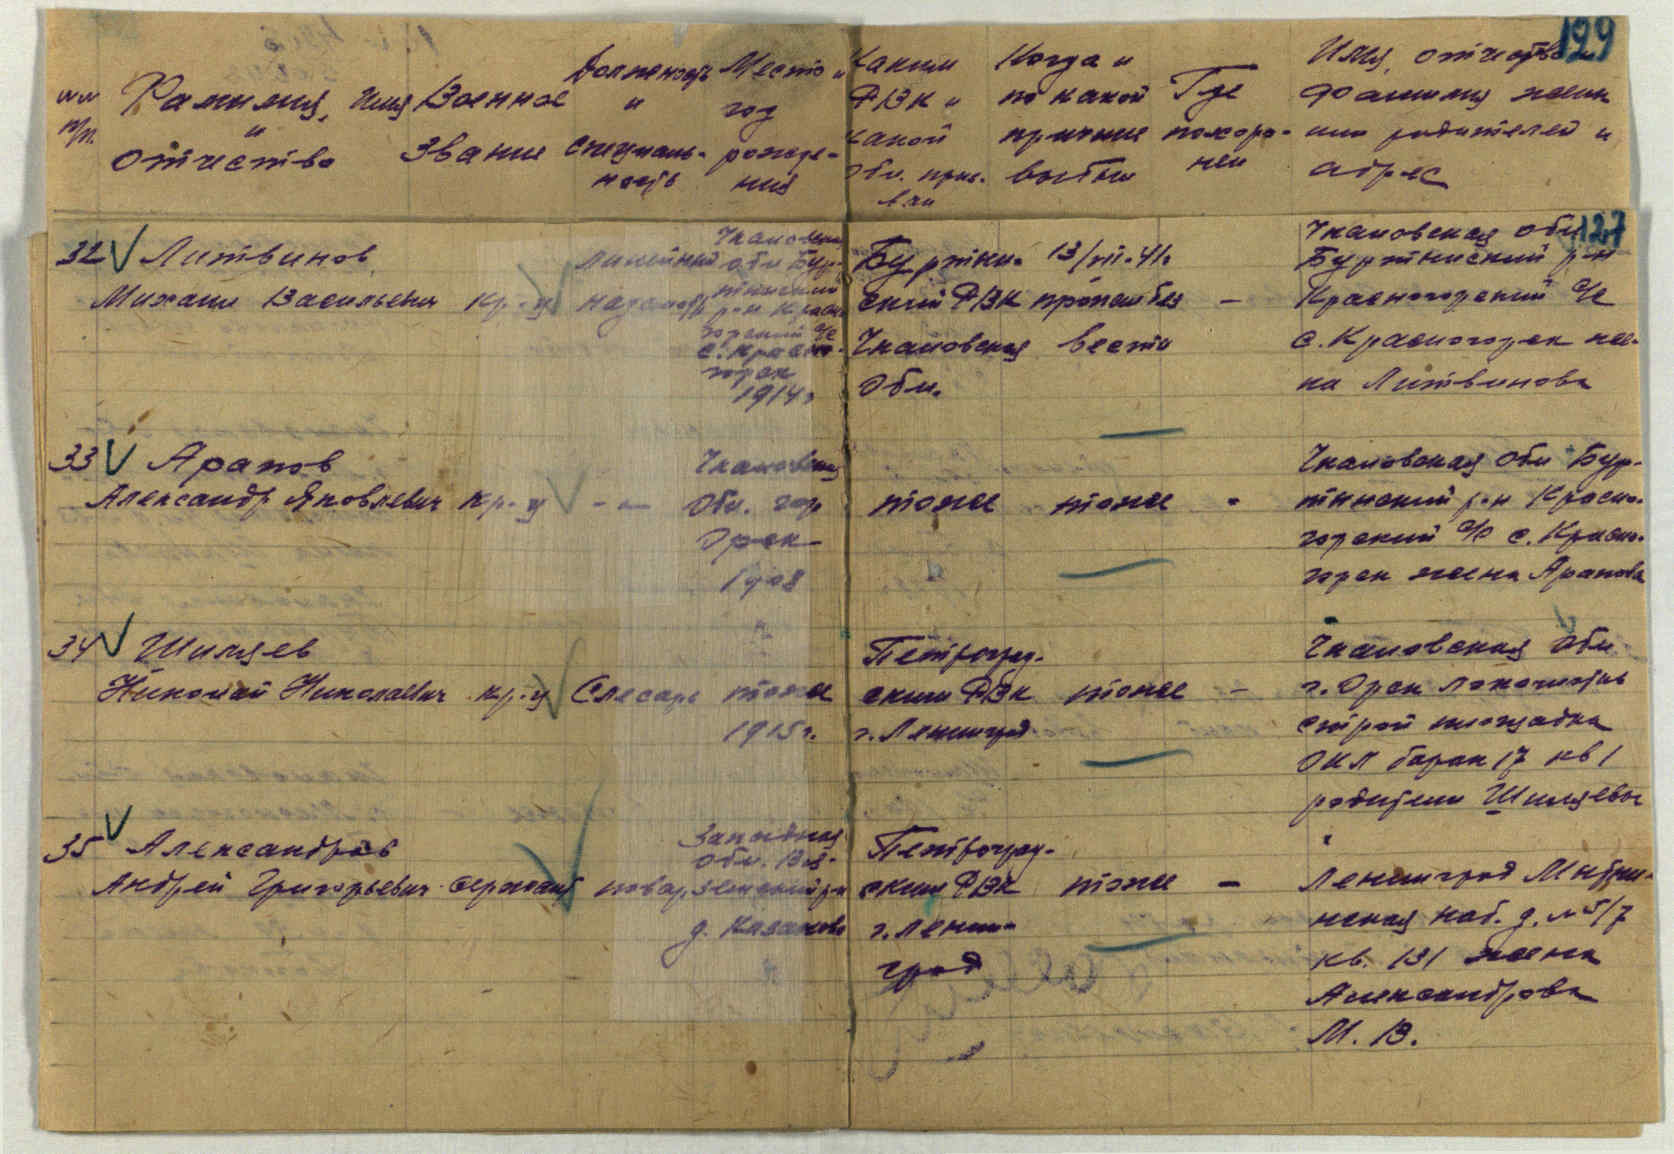 129
№№ п/п.
Фамилия, имя
и
отчество
Военное
звание
Должность
и
специаль-
ность
Место и
год
рожде-
ния
Каким
РВК и
какой
обл. приз-
ван
Когда и
по какой
причине
выбыл
Где
похоро-
нен
Имя, отчество и
фамилия жены
или родителей и
адрес
127
32 Литвинов
Михаил Васильевич
кр-ц
линейный
надсмотр
Чкаловская
обл Бур-
тинский
р-н Красно
горский с/с
с. Красно-
горск
1914г
Буртин-
ский РВК
Чкаловская
обл.
13/VII-41.
пропал без
вести
–
Чкаловская обл
Буртинский р-н
Красногорский с/с
с. Красногорск же-
на Литвинова
33 Арапов
Александр Яковлевич
кр-ц
- -
Чкаловская
обл. гор
Орск
1908
тоже
тоже
-
Чкаловская обл Бур-
тинский р-н Красно-
горский с/с с. Красно-
горск жена Арапова
34 Шиляев
Николай Николаевич
кр-ц
Слесарь
тоже
1915г.
Петроград-
ским РВК
г. Ленинград
тоже
–
Чкаловская обл
г. Орск
строй площадка
барак 17 кв 1
родители Шиляевы
35 Александров
Андрей Григорьевич
сержант
повар
Западная
обл. Вя-
земский р-н
д. Казаково
Петроград-
ским РВК
г. Ленин-
град
тоже
–
Ленинград Мытни-
нская наб. д. №5/7
кв. 131 жена
Александрова
М. В.